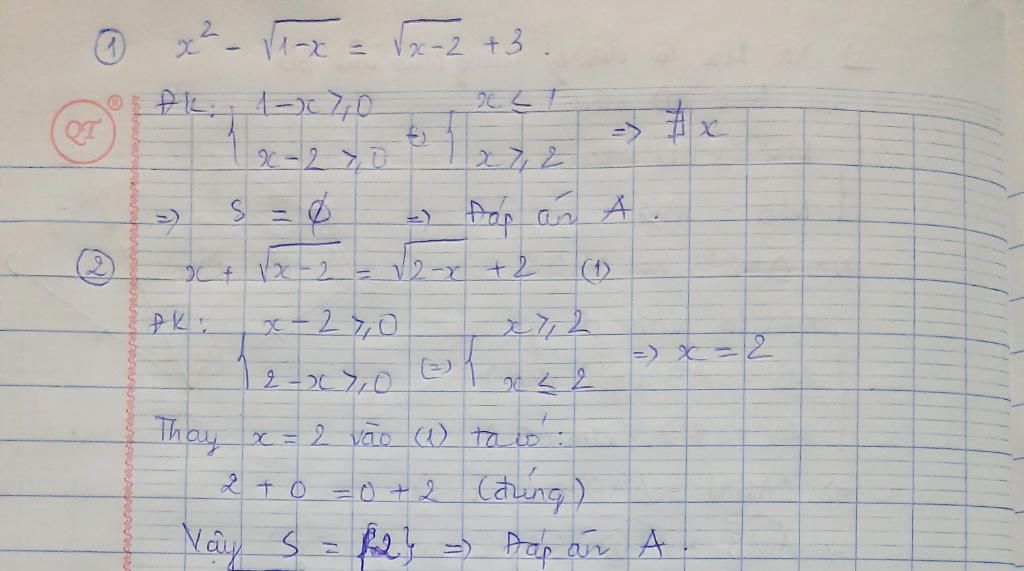 ① x² - √(1-x) = √(x-2) + 3 .
QT
ĐK: { 1-x ≥ 0 ; x-2 ≥ 0 ⇔ { x ≤ 1 ; x ≥ 2 ⇒ ∄ x
⇒ S = ∅ ⇒ Đáp án A .
② x + √(x-2) = √(2-x) + 2 (1)
ĐK: { x-2 ≥ 0 ; 2-x ≥ 0 ⇔ { x ≥ 2 ; x ≤ 2 ⇒ x = 2
Thay x = 2 vào (1) ta có :
2 + 0 = 0 + 2 (đúng)
Vậy S = {2} ⇒ Đáp án A .